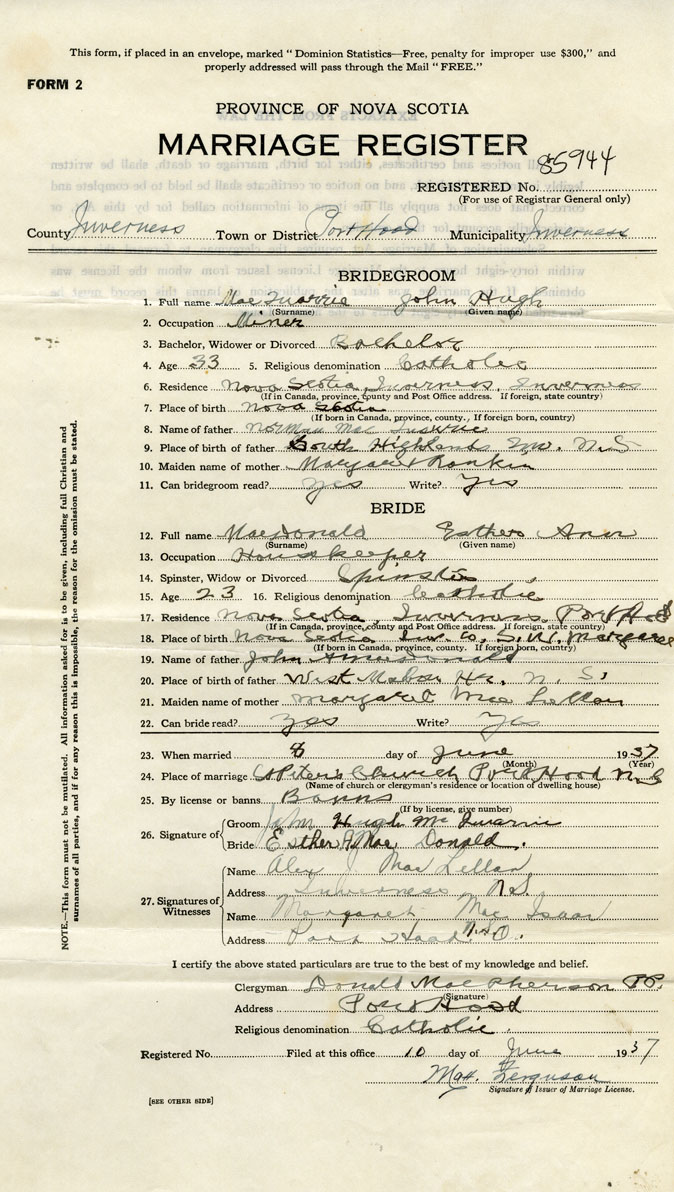 This form, if placed in an envelope, marked "Dominion Statistics—Free, penalty for improper use $300," and
properly addressed will pass through the Mail "FREE."
FORM 2
PROVINCE OF NOVA SCOTIA
MARRIAGE REGISTER
REGISTERED No. 85944
(For use of Registrar General only)
County Inverness Town or District Port Hood Municipality Inverness
BRIDEGROOM
1. Full name Mac Quarrie John Hugh
(Surname) (Given name)
2. Occupation Miner
3. Bachelor, Widower or Divorced Bachelor
4. Age 33 5. Religious denomination Catholic
6. Residence Nova Scotia, Inverness, Inverness
(If in Canada, province, county and Post Office address. If foreign, state country)
7. Place of birth Nova Scotia
(If born in Canada, province, county., If foreign born, country)
8. Name of father Norman Mac Quarrie
9. Place of birth of father South Highlands Inv. N.S
10. Maiden name of mother Margaret Rankin
11. Can bridegroom read? yes Write? yes
BRIDE
12. Full name MacDonald Esther Ann
(Surname) (Given name)
13. Occupation Housekeeper
14. Spinster, Widow or Divorced Spinster
15. Age 23 16. Religious denomination Catholic
17. Residence Nova Scotia, Inverness, Port Hood
(If in Canada, province, county and Post Office address. If foreign, state country)
18. Place of birth Nova Scotia Inv. Co. S.W. Margaree
(If born in Canada, province, county. If foreign born, country)
19. Name of father John A. MacDonald
20. Place of birth of father West Mabou Hr. N.S.
21. Maiden name of mother Margaret Mac Lellan
22. Can bride read? yes Write? yes
23. When married 8 day of June 1937
(Month) (Year)
24. Place of marriage St Peter's Church Port Hood N.S
(Name of church or clergyman's residence or location of dwelling house)
25. By license or banns Banns
(If by license, give number)
26. Signature of
Groom John Hugh Mc Quarrie
Bride Esther A Mac Donald.
27. Signatures of Witnesses
Name Alex J. Mac Lellan
Address Inverness N.S.
Name Margaret Mac Isaac
Address Port Hood
I certify the above stated particulars are true to the best of my knowledge and belief.
Clergyman Donald MacPherson P.P.
(Signature)
Address Port Hood
Religious denomination Catholic.
Registered No. Filed at this office 10 day of June 1937
Ferguson
Signature of Issuer of Marriage License.
[SEE OTHER SIDE]
NOTE.—This form must not be mutilated. All information asked for is to be given, including full Christian and
surnames of all parties, and if for any reason this is impossible, the reason for the omission must be stated.